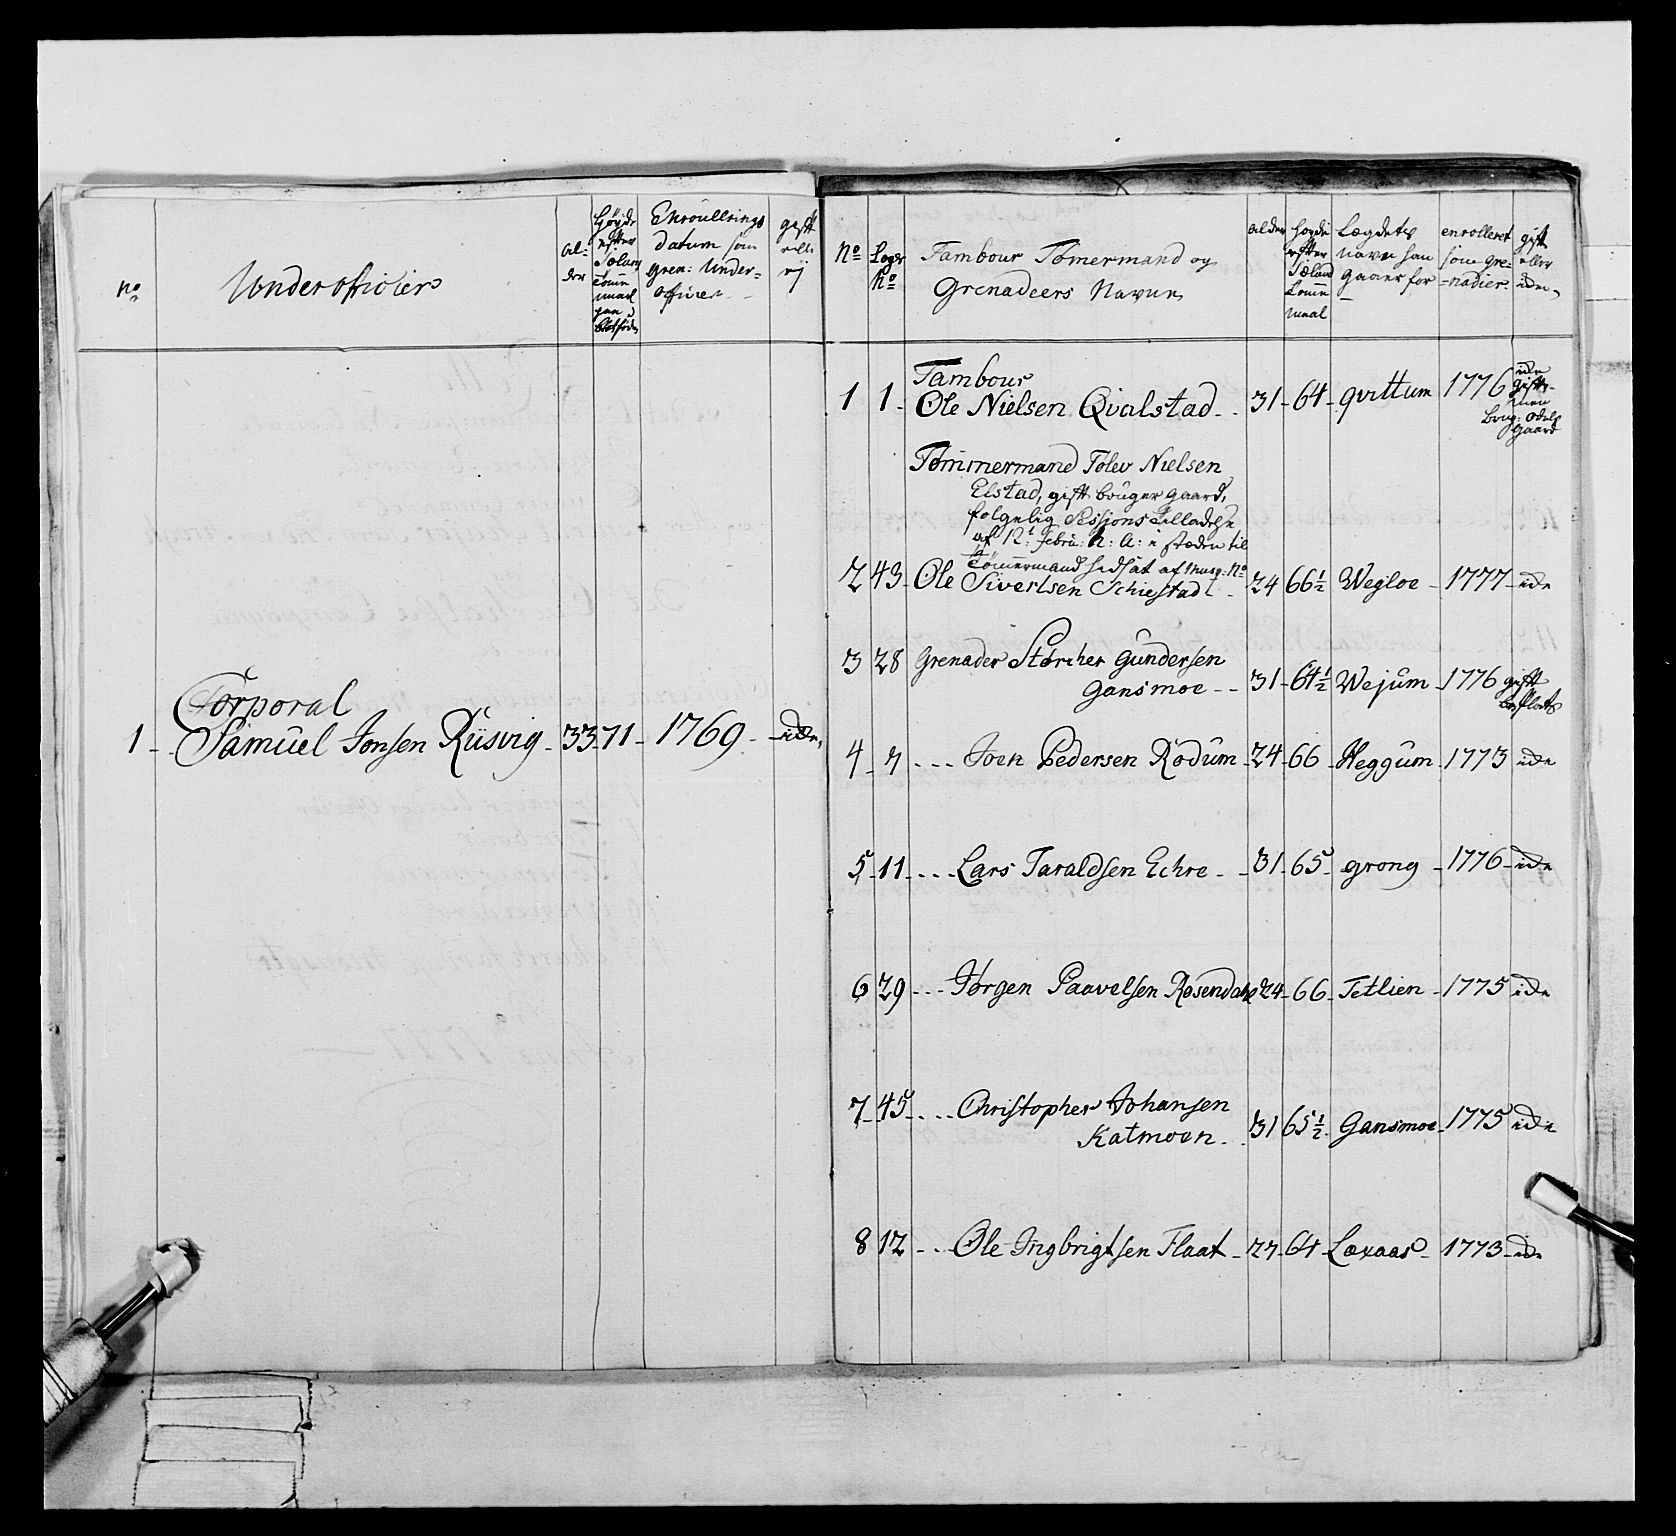 no
Underofficiers
al-
der
Høyde
efter
Sælands
tomme
maal
paa
blotføder
Enroullerings
datum som
gren: Under=
officer
gift
eller
ej
Corporal
1 Samuel Jonsen Rüsvig 33 71 1769 ide
No
Lægs
No
Tambour Tømermand og
Grenadeers Navne
alder
Høyde
efter
Siæland
tomme
maal
Lægdets
navn han
gaaer for
enrolleret
som gre=
=nadier
gift
eller
iden
Tambour
1 1 Ole Nielsen Qvalstad 31 64 qvittum 1776 ide
gift
men
brug: odels
gaard
Tømmermand Tolev Nielsen
Elstad, gift bruger gaard,
følgelig Sessions Tilladelse
af 12t Febru: h: A: i stæden til
Tømermand hedsat af musq: No
2 43 Ole Sivertsen Schiestad 24 66½ Wegloe 1777 ide
3 28 Grenader Størcher Gundersen
Gansmoe 31 64½ Wejum 1776 gift
4 7 Joen Pedersen Rodum 24 66 Heggum 1773 ide
5 11 Lars Taraldsen Echre 31 65 grong 1776 ide
6 29 Jørgen Paavelsen Rosendahl 24 66 Tetlien 1775 ide
7 45 Christopher Johansen
Katmoen 31 65½ Gansmoe 1775 ide
8 12 Ole Ingbrigtsen Flaat 27 64 Laxaas 1773 ide